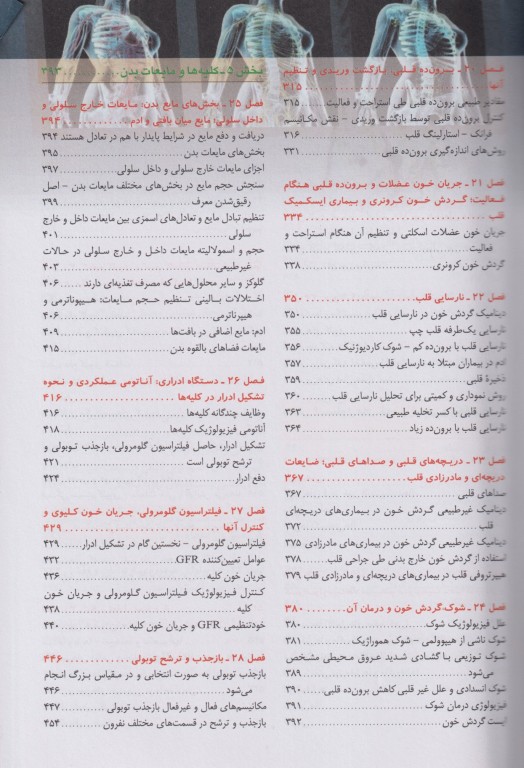 فصل ۲۰ ـ برون‌ده قلبی، بازگشت وریدی و تنظیم
آنها ۳۱۵
مقادیر طبیعی برون‌ده قلبی طی استراحت و فعالیت ۳۱۵
کنترل برون‌ده قلبی توسط بازگشت وریدی – نقش مکانیسم
فرانک – استارلینگ قلب ۳۱۶
روش‌های اندازه‌گیری برون‌ده قلبی ۳۳۱
فصل ۲۱ ـ جریان خون عضلات و برون‌ده قلبی هنگام
فعالیت؛ گردش خون کرونری و بیماری ایسکمیک
قلب ۳۳۴
جریان خون عضلات اسکلتی و تنظیم آن هنگام استراحت و
فعالیت ۳۳۴
گردش خون کرونری ۳۳۸
فصل ۲۲ ـ نارسایی قلب ۳۵۰
دینامیک گردش خون در نارسایی قلب ۳۵۰
نارسایی یک‌طرفه قلب چپ ۳۵۵
نارسایی قلب با برون‌ده کم – شوک کاردیوژنیک ۳۵۶
ادم در بیماران مبتلا به نارسایی قلب ۳۵۷
ذخیرهٔ قلبی ۳۵۹
روش نموداری و کمیتی برای تحلیل نارسایی قلب ۳۶۰
نارسایی قلب با کسر تخلیه طبیعی ۳۶۳
نارسایی قلب با برون‌ده زیاد ۳۶۴
فصل ۲۳ ـ دریچه‌های قلبی و صداهای قلبی؛ ضایعات
دریچه‌ای و مادرزادی قلب ۳۶۷
صداهای قلبی ۳۶۷
دینامیک غیرطبیعی گردش خون در بیماری‌های دریچه‌ای
قلب ۳۷۲
دینامیک غیرطبیعی گردش خون در بیماری‌های مادرزادی ۳۷۵
استفاده از گردش خون خارج بدنی طی جراحی قلب ۳۷۸
هیپرتروفی قلب در بیماری‌های دریچه‌ای و مادرزادی قلب ۳۷۹
فصل ۲۴ ـ شوک گردش خون و درمان آن ۳۸۰
علل فیزیولوژیک شوک ۳۸۰
شوک ناشی از هیپوولمی – شوک هموراژیک ۳۸۱
شوک توزیعی با گشادی شدید عروق محیطی مشخص
می‌شود ۳۸۹
شوک انسدادی و علل غیر قلبی کاهش برون‌ده قلبی ۳۹۰
فیزیولوژی درمان شوک ۳۹۱
ایست گردش خون ۳۹۲
بخش ۵ ـ کلیه‌ها و مایعات بدن ۳۹۳
فصل ۲۵ ـ بخش‌های مایع بدن: مایعات خارج سلولی و
داخل سلولی؛ مایع میان بافتی و ادم ۳۹۴
دریافت و دفع مایع در شرایط پایدار با هم در تعادل هستند ۳۹۴
بخش‌های مایعات بدن ۳۹۵
اجزای مایعات خارج سلولی و داخل سلولی ۳۹۷
سنجش حجم مایع در بخش‌های مختلف مایعات بدن – اصل
رقیق‌شدن معرف ۳۹۹
تنظیم تبادل مایع و تعادل‌های اسمزی بین مایعات داخل و خارج
سلولی ۴۰۱
حجم و اسمولالیته مایعات داخل و خارج سلولی در حالات
غیرطبیعی ۴۰۳
گلوکز و سایر محلول‌هایی که مصرف تغذیه‌ای دارند ۴۰۶
اختلالات بالینی تنظیم حجم مایعات: هیپوناترمی و
هیپرناترمی ۴۰۶
ادم: مایع اضافی در بافت‌ها ۴۰۹
مایعات فضاهای بالقوه بدن ۴۱۵
فصل ۲۶ ـ دستگاه ادراری: آناتومی عملکردی و نحوه
تشکیل ادرار در کلیه‌ها ۴۱۶
وظایف چندگانه کلیه‌ها ۴۱۶
آناتومی فیزیولوژیک کلیه‌ها ۴۱۸
تشکیل ادرار، حاصل فیلتراسیون گلومرولی، بازجذب توبولی و
ترشح توبولی است ۴۲۱
دفع ادرار ۴۲۴
فصل ۲۷ ـ فیلتراسیون گلومرولی، جریان خون کلیوی و
کنترل آنها ۴۲۹
فیلتراسیون گلومرولی – نخستین گام در تشکیل ادرار ۴۲۹
عوامل تعیین‌کننده GFR ۴۳۲
جریان خون کلیه ۴۳۶
کنترل فیزیولوژیک فیلتراسیون گلومرولی و جریان خون
کلیه ۴۳۸
خودتنظیمی GFR و جریان خون کلیه ۴۴۰
فصل ۲۸ ـ بازجذب و ترشح توبولی ۴۴۶
بازجذب توبولی به صورت انتخابی و در مقیاس بزرگ انجام
می‌شود ۴۴۶
مکانیسم‌های فعال و غیرفعال بازجذب توبولی ۴۴۷
بازجذب و ترشح در قسمت‌های مختلف نفرون ۴۵۴